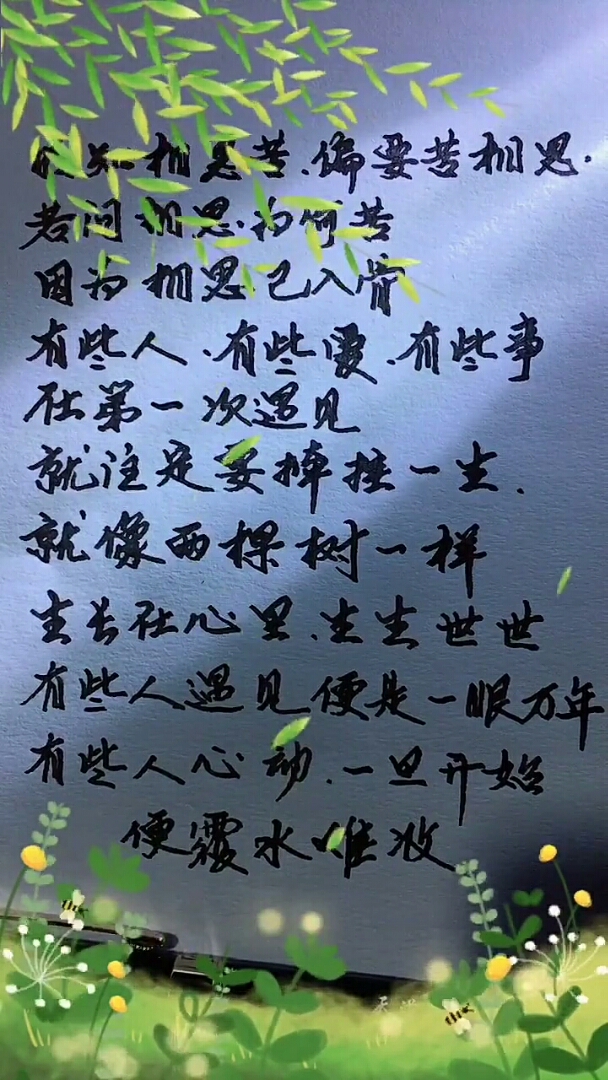 知相思苦、偏要苦相思.
若问相思为何苦
因为相思已入骨
有些人、有些爱、有些事
在第一次遇见
就注定要挂一生.
就像两棵树一样
生长在心里、生生世世
有些人遇见便是一眼万年
有些人心动.一旦开始
便覆水难收